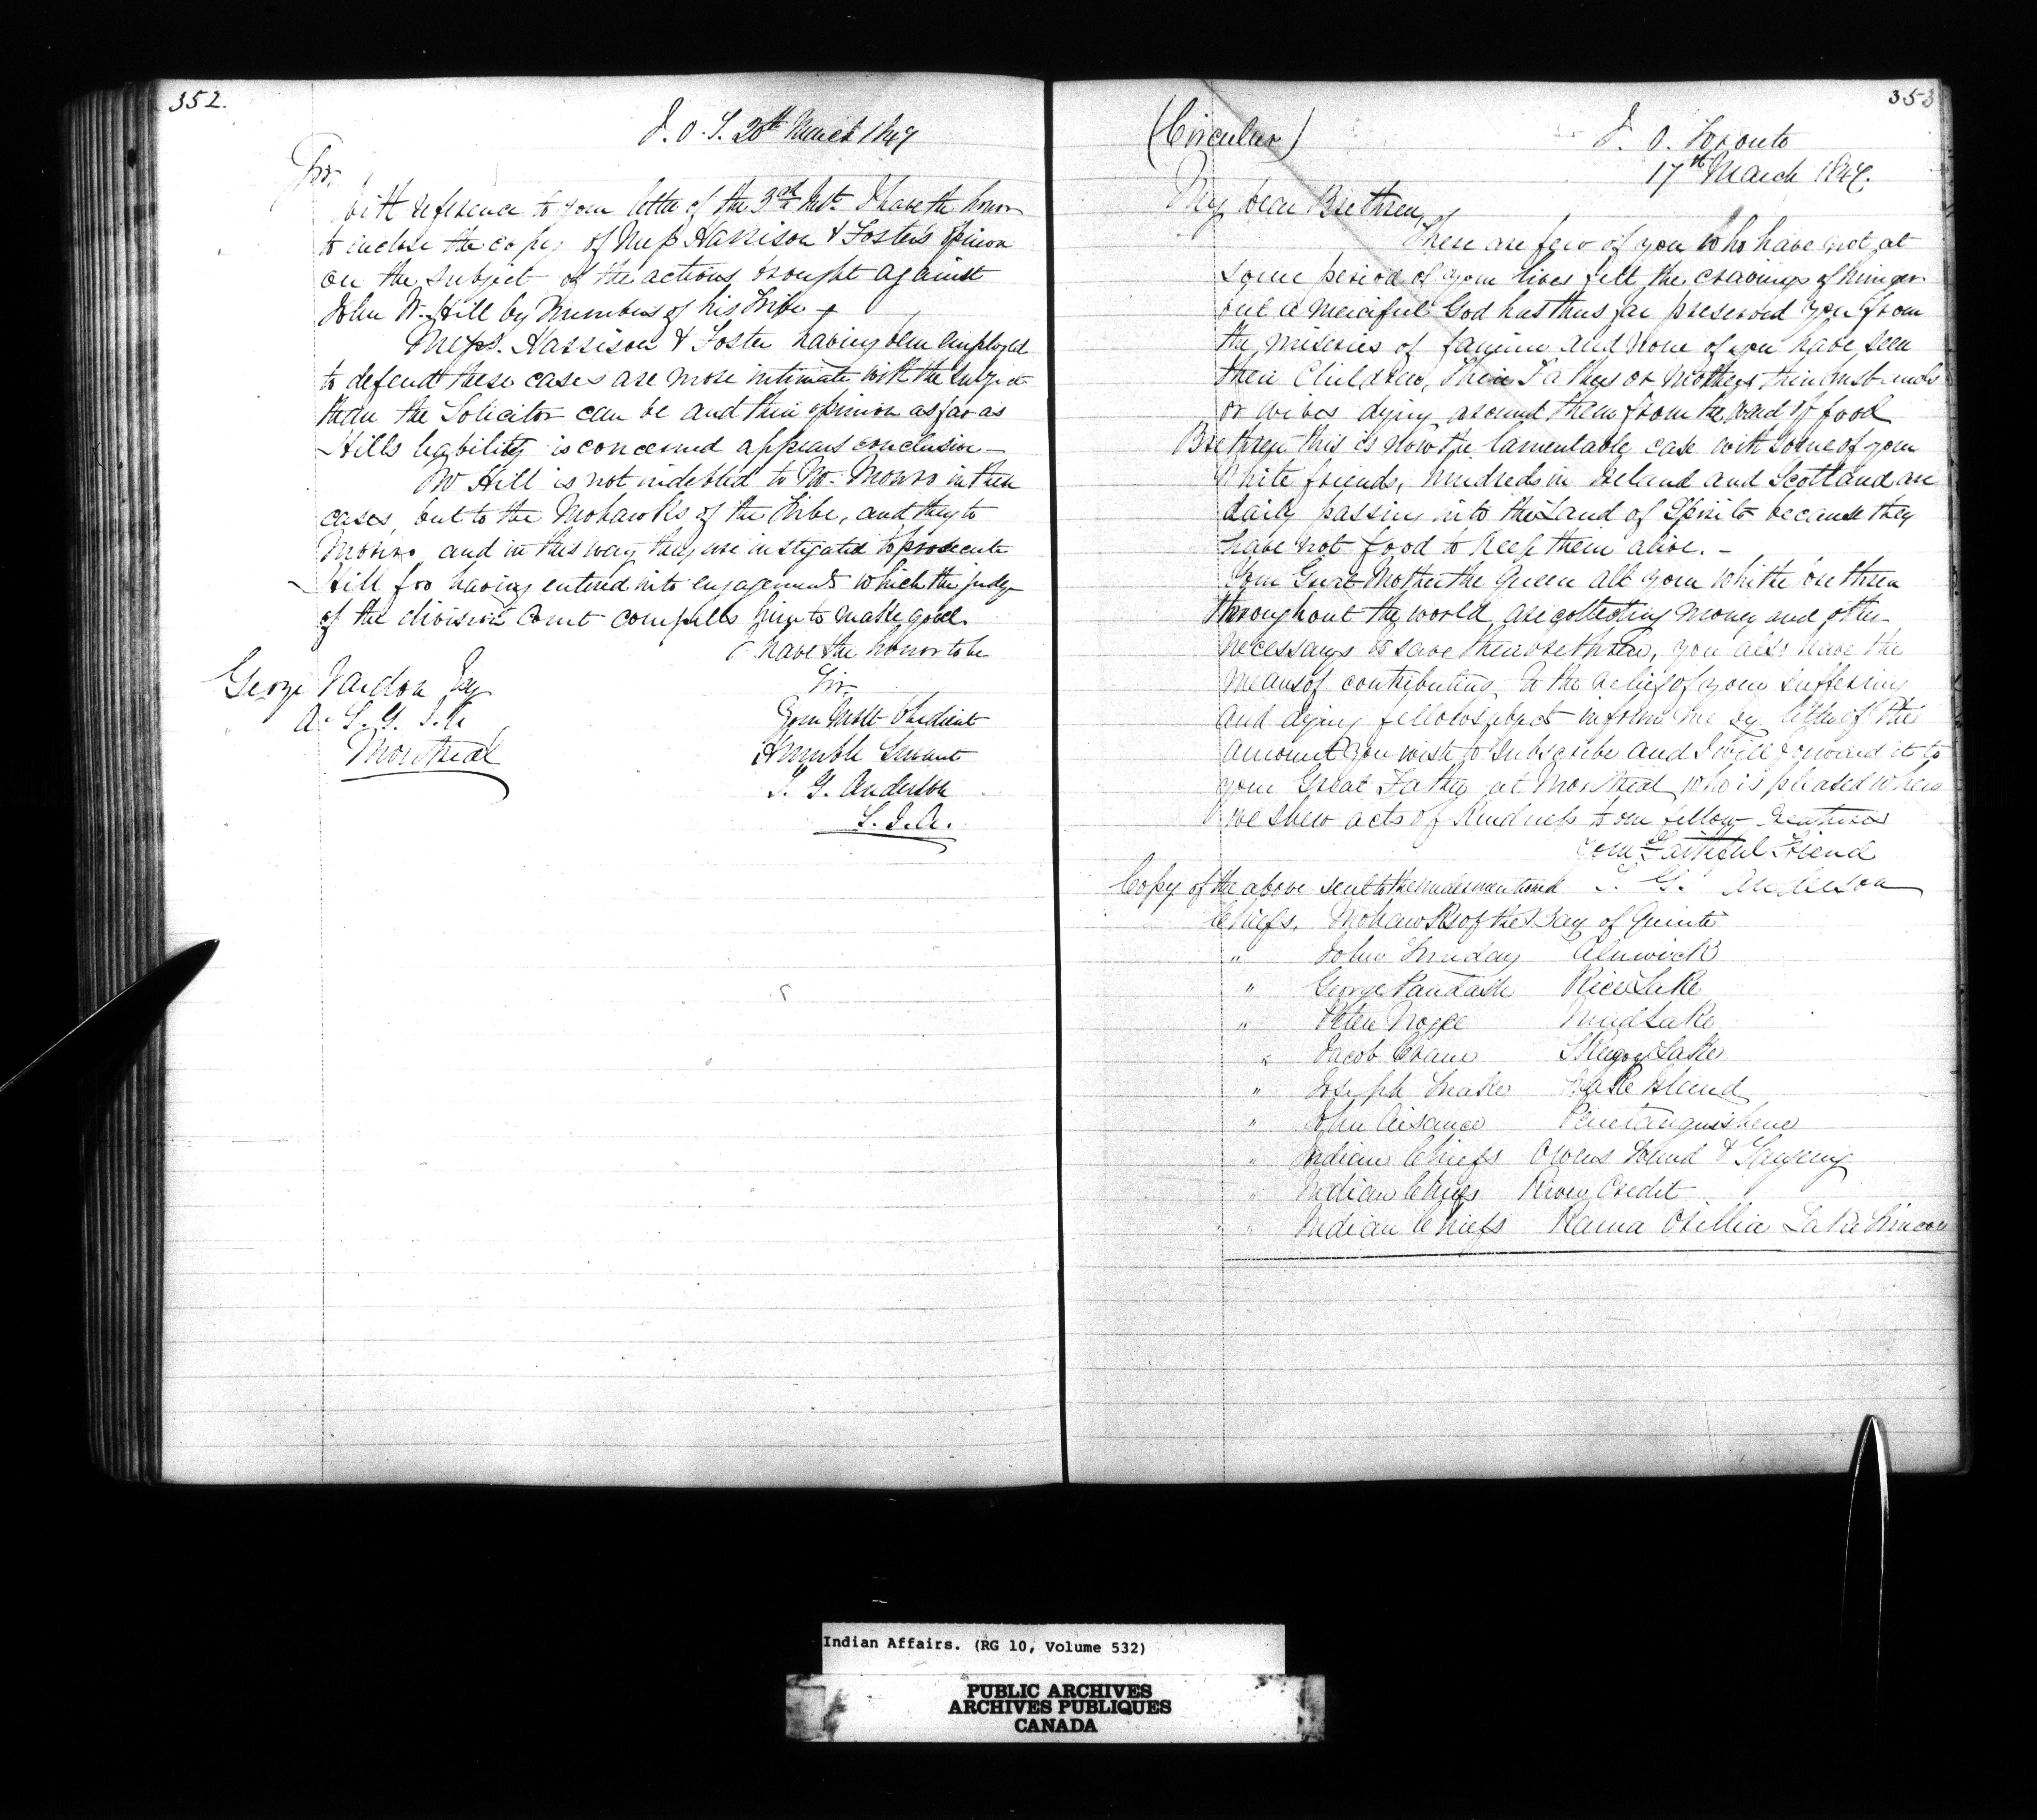 352.
I. O. T. 20th March 1847
Sir,
With reference to your letter of the 3rd Inst. I have the honor
to inclose the copy of Messrs Harrison & Foster's opinion
on the subject of the actions brought against
John W. Hill by Members of his Tribe
Messrs. Harrison & Foster having been employed
to defend these cases are more intimate with the subject
than the Solicitor can be and their opinion as far as
Hills liability is concerned appears conclusive -
Mr Hill is not indebted to Mr. Monro in these
cases, but to the Mohawks of the Tribe, and they to
Monro, and in this way they are instigated to prosecute
Hill for having entered into engagements which the judge
of the division Court compells him to make good.
I have the honor to be
Sir
Your Most Obedient
Humble Servant
T. G. Anderson
S. I. A.
George Vardon Esq
A. S. G. I. A.
Montreal
353
(Circular)
I. O. Toronto
17th March 1847.
My dear Brethren,
There are few of you who have not at
some period of your lives felt the cravings of hunger
but a merciful God has thus far preserved you from
the miseries of famine and None of you have seen
their Children, their Fathers or Mothers their husbands
or wives dying around them from the want of food
Brethren this is now the lamentable case with some of your
White friends, hundreds in Ireland and Scotland are
daily passing into the Land of Spirits because they
have not food to keep them alive. -
Your Great Mother the Queen all your white brethren
throughout the world are collecting money and other
necessarys to save these brethren, you also have the
means of contributing to the relief of your suffering
and dying fellow subjects inform me by letter of the
amount you wish to subscribe and I will forward it to
your Great Father at Montreal who is pleased when
we shew acts of kindness to our fellow creatures
Your Faithful Friend
T. G. Anderson
Copy of the above sent to the undermentioned
Chiefs. Mohawks of the Bay of Quinte
" John Sunday Alnwick
" George Paudash Rice Lake
" Peter Nogee Mud Lake
" Jacob Crane Skugog Lake
" Joseph Snake Snake Island
" John Aisance Penetanguishene
" Indian Chiefs Owens Sound & Saugeeng
" Indian Chiefs River Credit
" Indian Chiefs Rama Orillia Lake Simcoe
Indian Affairs. (RG 10, Volume 532)
PUBLIC ARCHIVES
ARCHIVES PUBLIQUES
CANADA